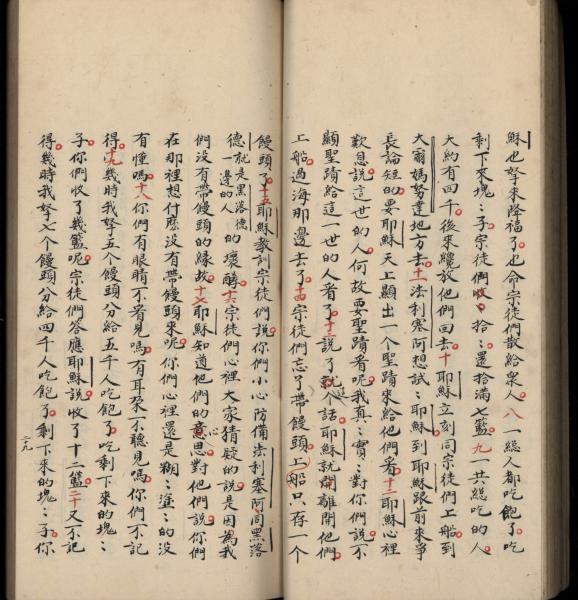 穌也拏來降福了也命宗徒們散給衆人八一緫人都吃飽了吃
剩下來塊〻子宗徒們收〻拾〻還拾滿七籃九一共緫吃的人
大約有四千後來纔放他們回去十耶穌立刻同宗徒們上船到
大爾媽努達地方去十一法利塞阿想試〻耶穌到耶穌跟前來爭
長論短的要耶穌天上顯出一个聖蹟來給他們看十二耶穌心裡
歎息說這世的人何故要聖蹟看呢我真〻實〻對你們說不
顯聖蹟給這一世的人看了十三說了這个話耶穌就開離開他們
上船過海那邊去了十四宗徒們忘了帶饅頭上船只存一个
饅頭了十五耶穌教訓宗徒們說你們小心防備法利塞阿同黑落
德就是黑落德一邊的人的壞酵十六宗徒們心裡大家猜疑的說是因爲我
們沒有帶饅頭的緣故十七耶穌知道他們的意思對他們說你們
心
在那裡想什麽沒有帶饅頭來呢你們心裡還是糊〻塗〻的没
有懂嗎十八你們有眼睛不看見嗎有耳朶不聽見嗎你們不記
得十九幾時我拏五个饅頭分給五千人吃飽了吃剩下來的塊〻
子你們收了幾籃呢宗徒們答應耶穌說收了十二籃二十又不記
得幾時我拏七个饅頭分給四千人吃飽了剩下來的塊〻子你
二九